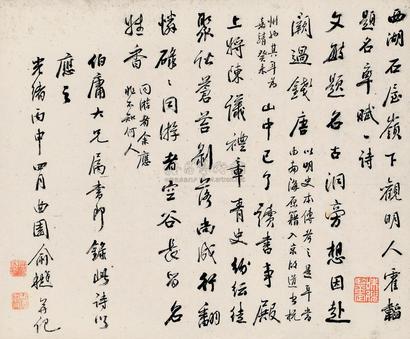 西湖石屋嶺下觀明人霍韜
題名率賦一詩
文敏題名古洞旁想因赴
闕過錢唐以明史本傳考之是年當
由南海原籍入京故道出杭
州也其年為
嘉靖癸未
山中已了讀書事殿
上將陳議禮章青史紛紜徒
聚訟蒼苔剝落尚成行翻
憐碌碌同游者空谷長留名
姓香同游者余應
不知何人
伯庸大兄屬書即錄此詩以
應之
光緒丙申四月曲園俞樾并記